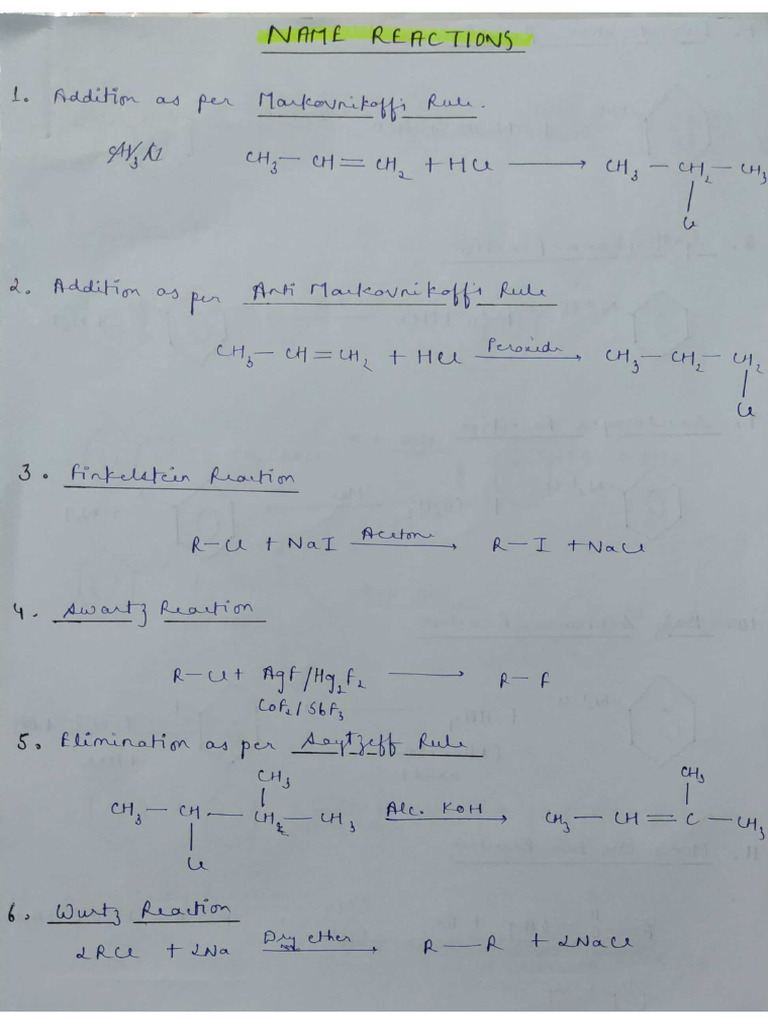 NAME REACTIONS
1. Addition as per Markovnikoff's Rule.
CH3— CH=CH2 + HCl ⟶ CH3 — CH2 — CH3
|
Cl
2. Addition as per Anti Markovnikoff's Rule
CH3— CH=CH2 + HCl Peroxide ⟶ CH3— CH2— CH2
|
Cl
3. Finkelstein Reaction
R—Cl + NaI Acetone ⟶ R—I + NaCl
4. Swartz Reaction
R—Cl + AgF/Hg2F2 ⟶ R—F
CoF2/SbF3
5. Elimination as per Saytzeff Rule
CH3 CH3
| |
CH3— CH— CH— CH3 Alc. KOH ⟶ CH3— CH=C—CH3
|
Cl
6. Wurtz Reaction
2RCl + 2Na Dry ether ⟶ R—R + 2NaCl